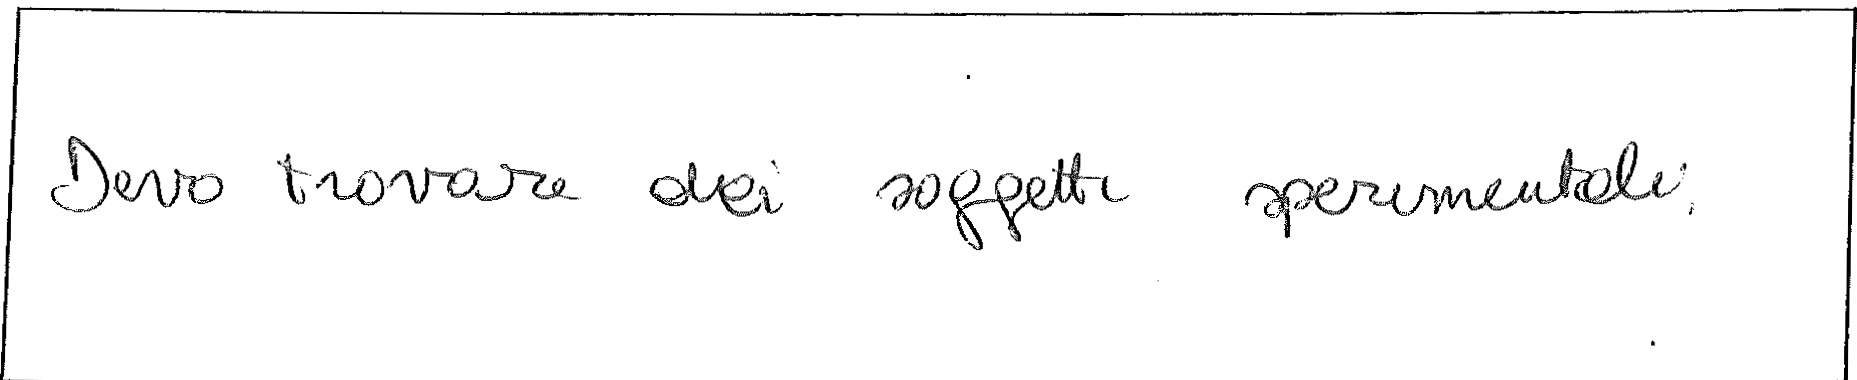 Devo trovare dei soggetti sperimentali,